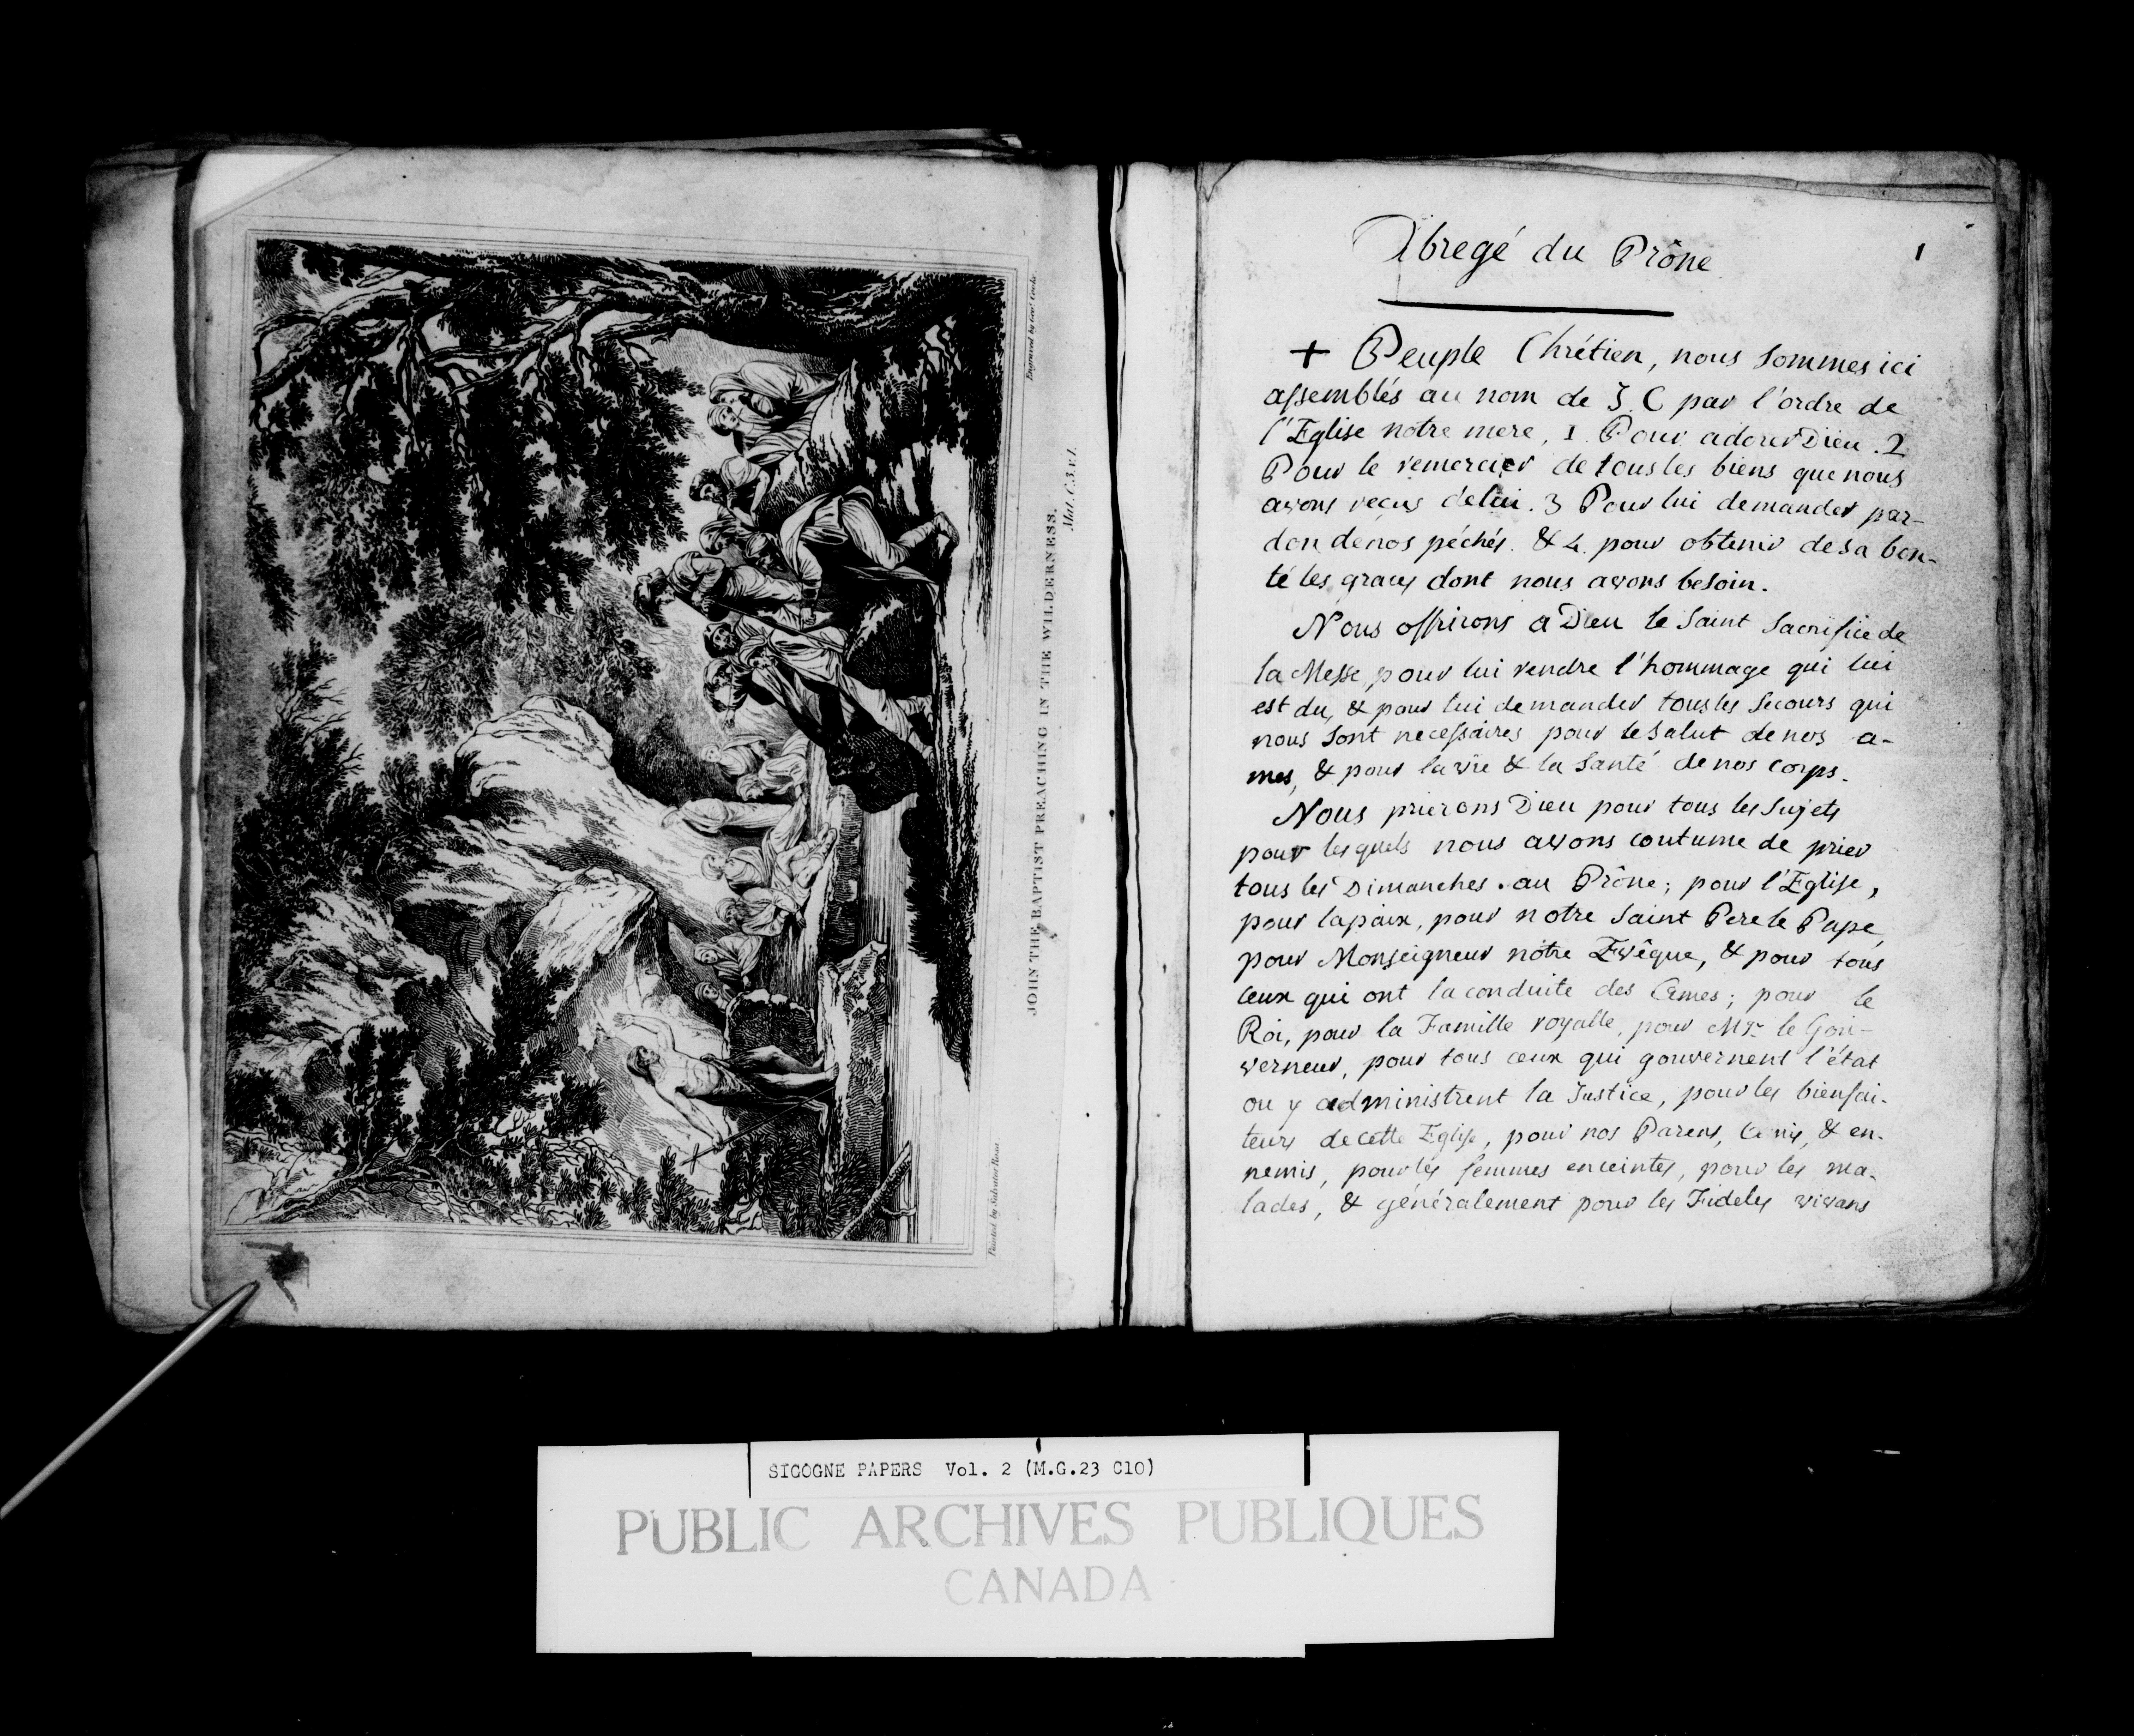 Engraved by Geo. Cooke.
JOHN THE BAPTIST PREACHING IN THE WILDERNESS.
Mat. C.3.v.1.
Painted by Salvator Rosa
Abregé du Prône
1
+ Peuple Chrétien, nous sommes ici
assemblés au nom de J. C par l'ordre de
l'Eglise notre mere, 1. Pour adorer Dieu. 2
Pour le remercier de tous les biens que nous
avons reçus de lui. 3 Pour lui demander par-
don de nos péchés. & 4. pour obtenir de sa bon-
té les graces dont nous avons besoin.
Nous offrirons a Dieu le Saint Sacrifice de
la Messe, pour lui rendre l'hommage qui lui
est du, & pour lui demander tous les secours qui
nous sont necessaires pour le salut de nos a-
mes, & pour la vie & la santé de nos corps.
Nous prierons Dieu pour tous les sujets
pour lesquels nous avons coutume de prier
tous les Dimanches. au Prône; pour l'Eglise,
pour la paix, pour notre Saint Pere le Pape,
pour Monseigneur nôtre Evêque, & pour tous
ceux qui ont la conduite des Ames; pour le
Roi, pour la Famille royalle, pour Mgr le Gou-
verneur, pour tous ceux qui gouvernent l'état
ou y administrent la Justice, pour les bienfai-
teurs de cette Eglise, pour nos Parens, Amis, & en-
nemis, pour les femmes enceintes, pour les ma-
lades, & généralement pour les Fideles vivans
SICOGNE PAPERS Vol. 2 (M.G.23 C10)
PUBLIC ARCHIVES PUBLIQUES
CANADA